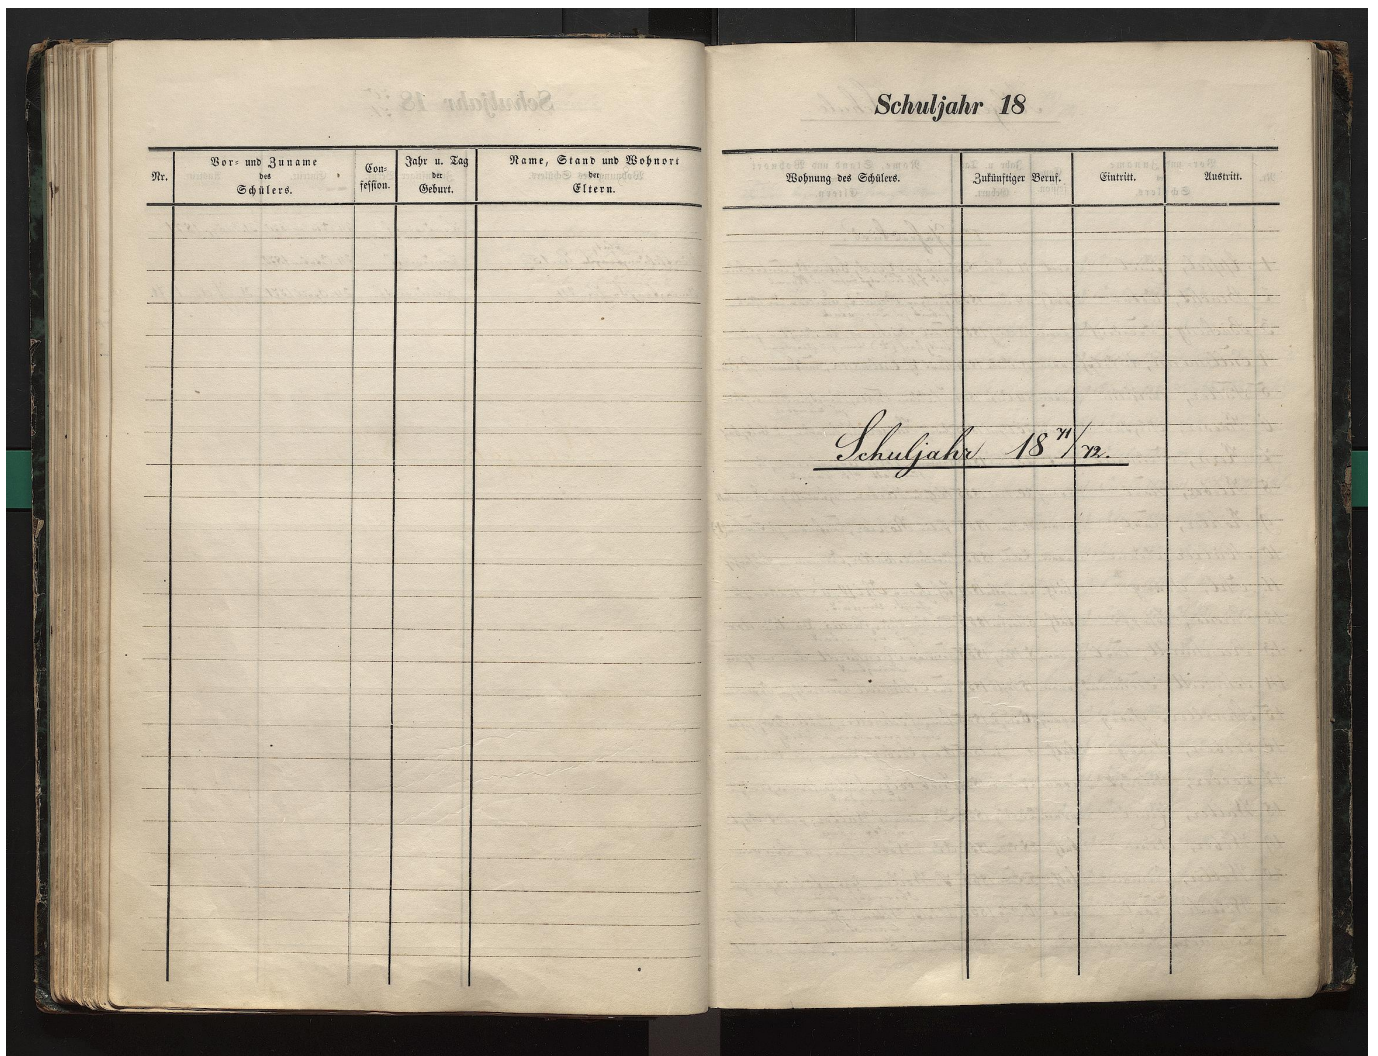 Nr.
Vor- und Zuname
des
Schülers.
Con-
fession.
Jahr u. Tag
der
Geburt.
Name, Stand und Wohnort
der
Eltern.
Schuljahr 18
Wohnung des Schülers.
Zukünftiger Beruf.
Eintritt.
Austritt.
Schuljahr 18 71/72.